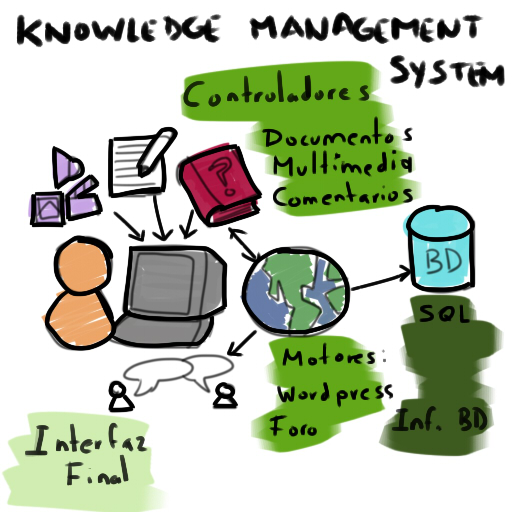 KNOWLEDGE MANAGEMENT
SYSTEM
Controladores
Documentos
Multimedia
Comentarios
?
BD
SQL
Motores:
Wordpress
Foro
Inf. BD
Interfaz
Final